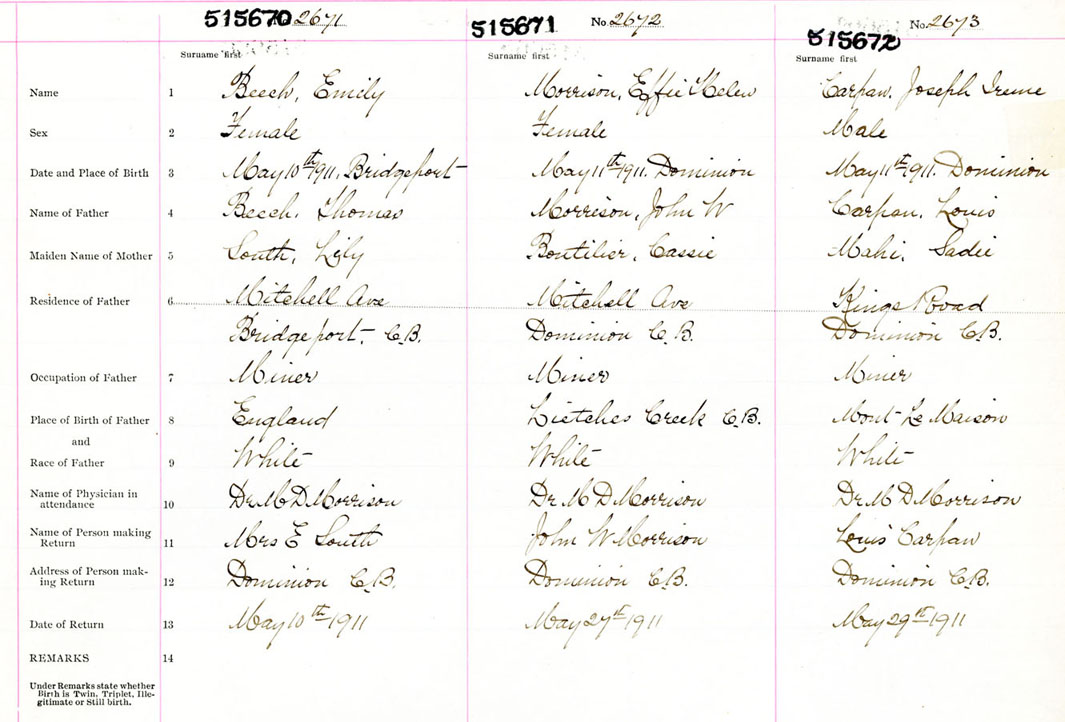 515670 2671 515671 No. 2672 515672 No. 2673
Surname first Surname first Surname first
Name 1 Beech, Emily Morrison, Effie Helen Carpan, Joseph Irene
Sex 2 Female Female Male
Date and Place of Birth 3 May 10th 1911, Bridgeport May 11th 1911. Dominion May 11th 1911. Dominion
Name of Father 4 Beech, Thomas Morrison, John W Carpan, Louis
Maiden Name of Mother 5 South, Lily Boutilier, Cassie Mahi, Sadie
Residence of Father 6 Mitchell Ave Mitchell Ave Kings Road
Bridgeport, C.B. Dominion C.B. Dominion C.B.
Occupation of Father 7 Miner Miner Miner
Place of Birth of Father 8 England Lietches Creek C.B. Mont Le Maison
and
Race of Father 9 White White White
Name of Physician in
attendance 10 Dr M D Morrison Dr M D Morrison Dr M D Morrison
Name of Person making
Return 11 Mrs E South John W Morrison Louis Carpan
Address of Person mak-
ing Return 12 Dominion C.B. Dominion C.B. Dominion C.B.
Date of Return 13 May 10th 1911 May 27th 1911 May 29th 1911
REMARKS 14
Under Remarks state whether
Birth is Twin, Triplet, Ille-
gitimate or Still birth.